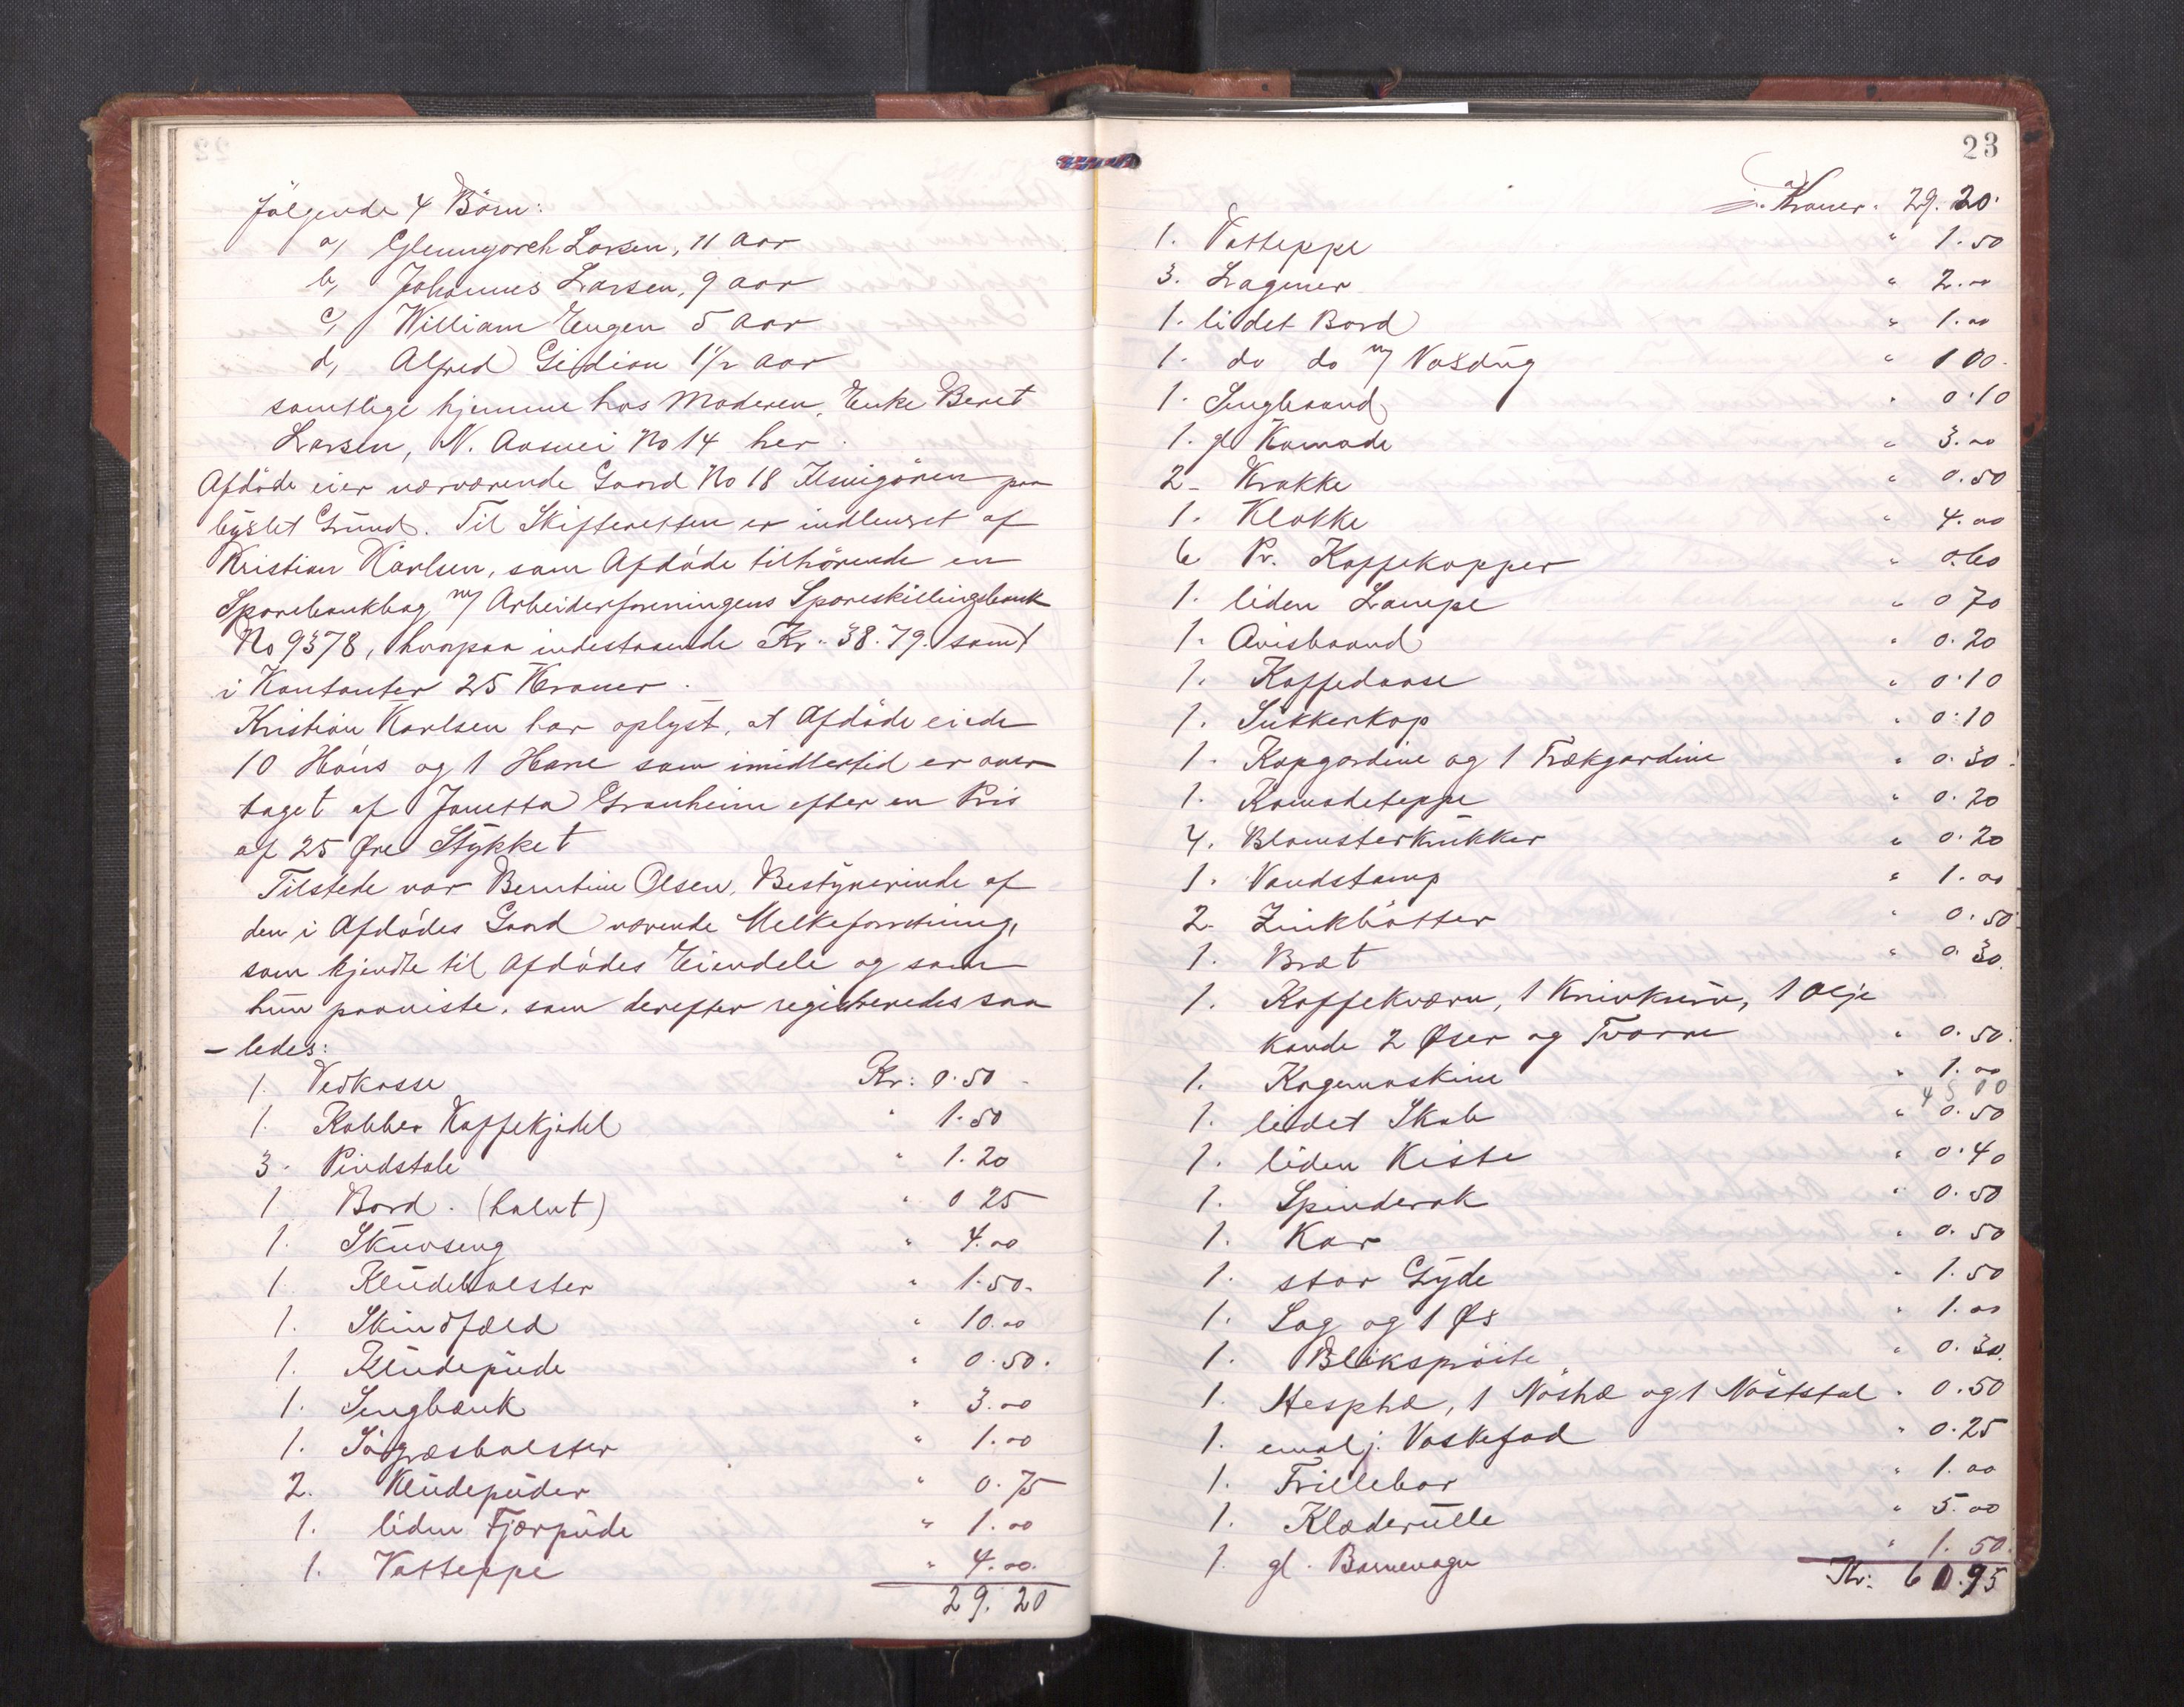 følgende 4 Börn:
a, Glenngoreh Larsen, 11 Aar
b, Johannes Larsen, 9 aar
c, William Eugen 5 Aar
d, Alfred Gidion 1 1/2 Aar
samtlige hjemme hos Moderen, Enke Beret
Larsen, N. Aasvei No 14 her.
Afdöde eier nærværende Gaard No 18 paa
bÿxlet Grund. Til Skifteretten er indleveret af
Kristian Karlsen, som Afdöde tilhörende en
Sparebankbog m/ Arbeiderforeningens Spareskillingsbank
No 9378, hvorpaa indestaaende Kr. 38.79. samt
i Kontanter 25 Kroner.
Kristian Karlsen har oplyst, at Afdöde eiede
10 Höns og 1 Hane som imidlertid er over
taget af Janetta Granheim efter en Pris
af 25 Øre Stÿkket
Tilstede var Berntine Olsen, Bestÿrerinde af
den i Afdödes Gaard værende Melkeforretning,
som kjendte til Afdödes Eiendele og som
hun paaviste, som derefter registreredes saa
-ledes:
1. Vedkasse Kr: 0.50
1. Kobber Kaffekjedel " 1.50
3. Pindstole " 1.20
1 Bord. (halvt) " 0 25
1. Skuvseng " 4.00
1 Kludebolster " 1.50.
1. Skindfæld " 10.00
1. Kludepude " 0.50.
1. Sengbænk " 3.00
1. Sögræsbolster " 1.00
2. Kludepuder " 0.75
1. liden Fjærpude " 1.00
1. Vatteppe " 4.00.
29.20
23
Kroner. 29.20.
1. Vatteppe " 1.50
3. Lagener " 2.00
1. lidet Bord " 1.00
1. do do m/ Voxdug " 1 00.
1. Sengbaand " 0.10
1. gl Komode " 3.00
2- Krakke " 0.50
1. Klokke " 4.00
6 Pr. Kaffekopper " 0.60
1. liden Lampe " 0 70
1. Avisbaand " 0.20
1. Kaffedaase " 0.10
1. Sukkerkop " 0.10
1. Kapgardine og 1 Trækgardine " 0.30.
1. Komodeteppe " 0.20
4. Blomsterkrukker " 0.20
1. Vandstamp " 1.00
2. Zinkbötter " 0.50
1. Bræt " 0.30.
1. Kaffekværn, 1 Knivkurv, 1 Olje
kande 2 Øser og Tvarre " 0.50.
1. Kogemaskine " 1.00
45 00
1. lidet Skab " 0.50
1. liden Kiste " 0.40
1. Spinderok " 0.50
1. Kar " 0.50
1. stor Grÿde " 1.50
1. Sag og 1 Øs " 1.00
1. Bliksprøite " 0.30.
1. Hesptræ, 1 Nöstræ og 1 Nöststol " 0.50
1. emalj. Vaskefad " 0.25
1. Trillebor " 1.00
1. Klæderulle " 5.00
1. gl. Barnevogn " 1.50.
Kr: 60.95